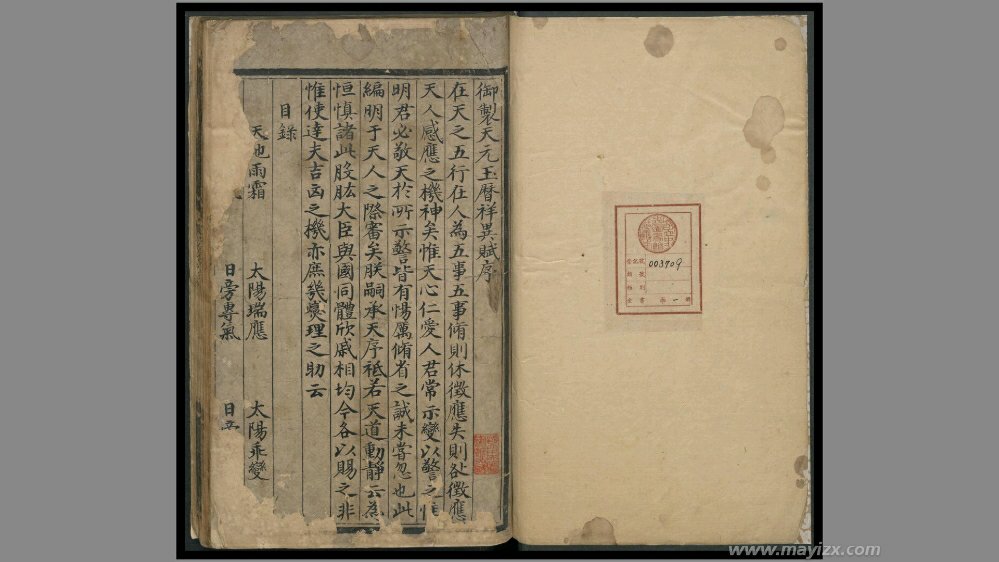 御製天元玉曆祥異賦序
在天之五行在人為五事五事脩則休徵應失則咎徵應
天人感應之機神矣惟天心仁愛人君常示變以警之惟
明君必敬天於所示警皆有惕厲脩省之誠未嘗忽也此
編明于天人之際審矣朕嗣承天序祗若天道動靜云為
恒慎諸此股肱大臣與國同體欣戚相均今各以賜之非
惟使達夫吉凶之機亦庶幾爕理之助云
目錄
天地雨霜 太陽瑞應 太陽乘變
日旁專氣 日
登記號 003709
www.mayizx.com